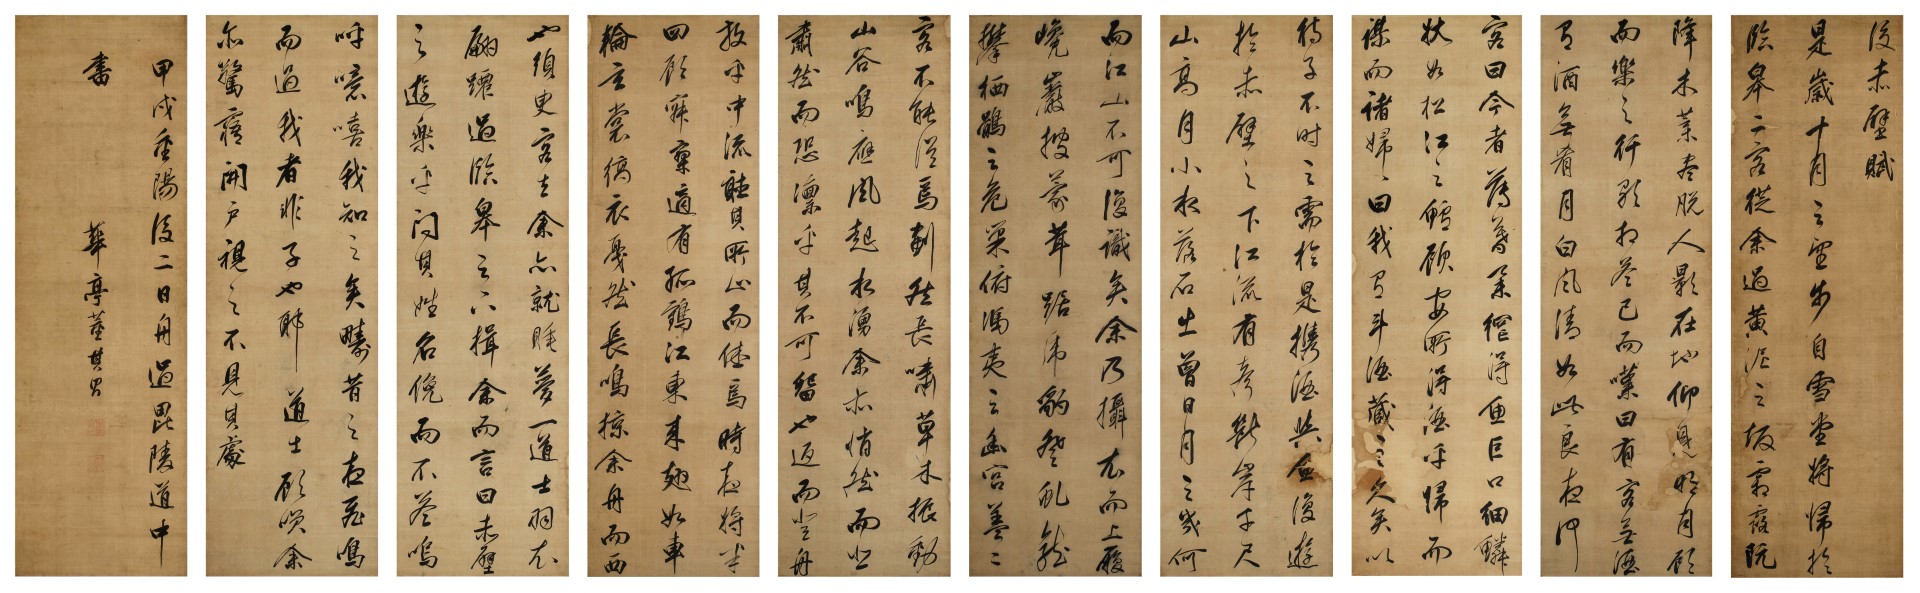 後赤壁賦
是歲十月之望步自雪堂將歸於
臨皋二客從余過黃泥之坂霜露既
降木葉盡脫人影在地仰見明月顧
而樂之行歌相答已而嘆曰有客無酒
有酒無肴月白風清如此良夜何
客曰今者薄暮舉網得魚巨口細鱗
狀如松江之鱸顧安所得酒乎歸而
謀而諸婦婦曰我有斗酒藏之久矣以
待子不時之需於是攜酒與魚復遊
於赤壁之下江流有聲斷岸千尺
山高月小水落石出曾日月之幾何
而江山不可復識矣余乃攝衣而上履
巉巖披蒙茸踞虎豹登虬龍
攀栖鶻之危巢俯馮夷之幽宮蓋二
客不能從焉劃然長嘯草木振動
山谷鳴應風起水湧余亦悄然而悲
肅然而恐凜乎其不可留也返而登舟
放乎中流聽其所止而休焉時夜將半
四顧寂寥適有孤鶴江東來翅如車
輪玄裳縞衣戛然長鳴掠余舟而西
也須臾客去余亦就睡夢一道士羽衣
翩躚過臨皋之下揖余而言曰赤壁
之遊樂乎問其姓名俛而不答嗚
呼噫嘻我知之矣疇昔之夜飛鳴
而過我者非子也耶道士顧笑余
亦驚寤開戶視之不見其處
甲戌重陽後二日舟過毘陵道中
書 華亭董其昌